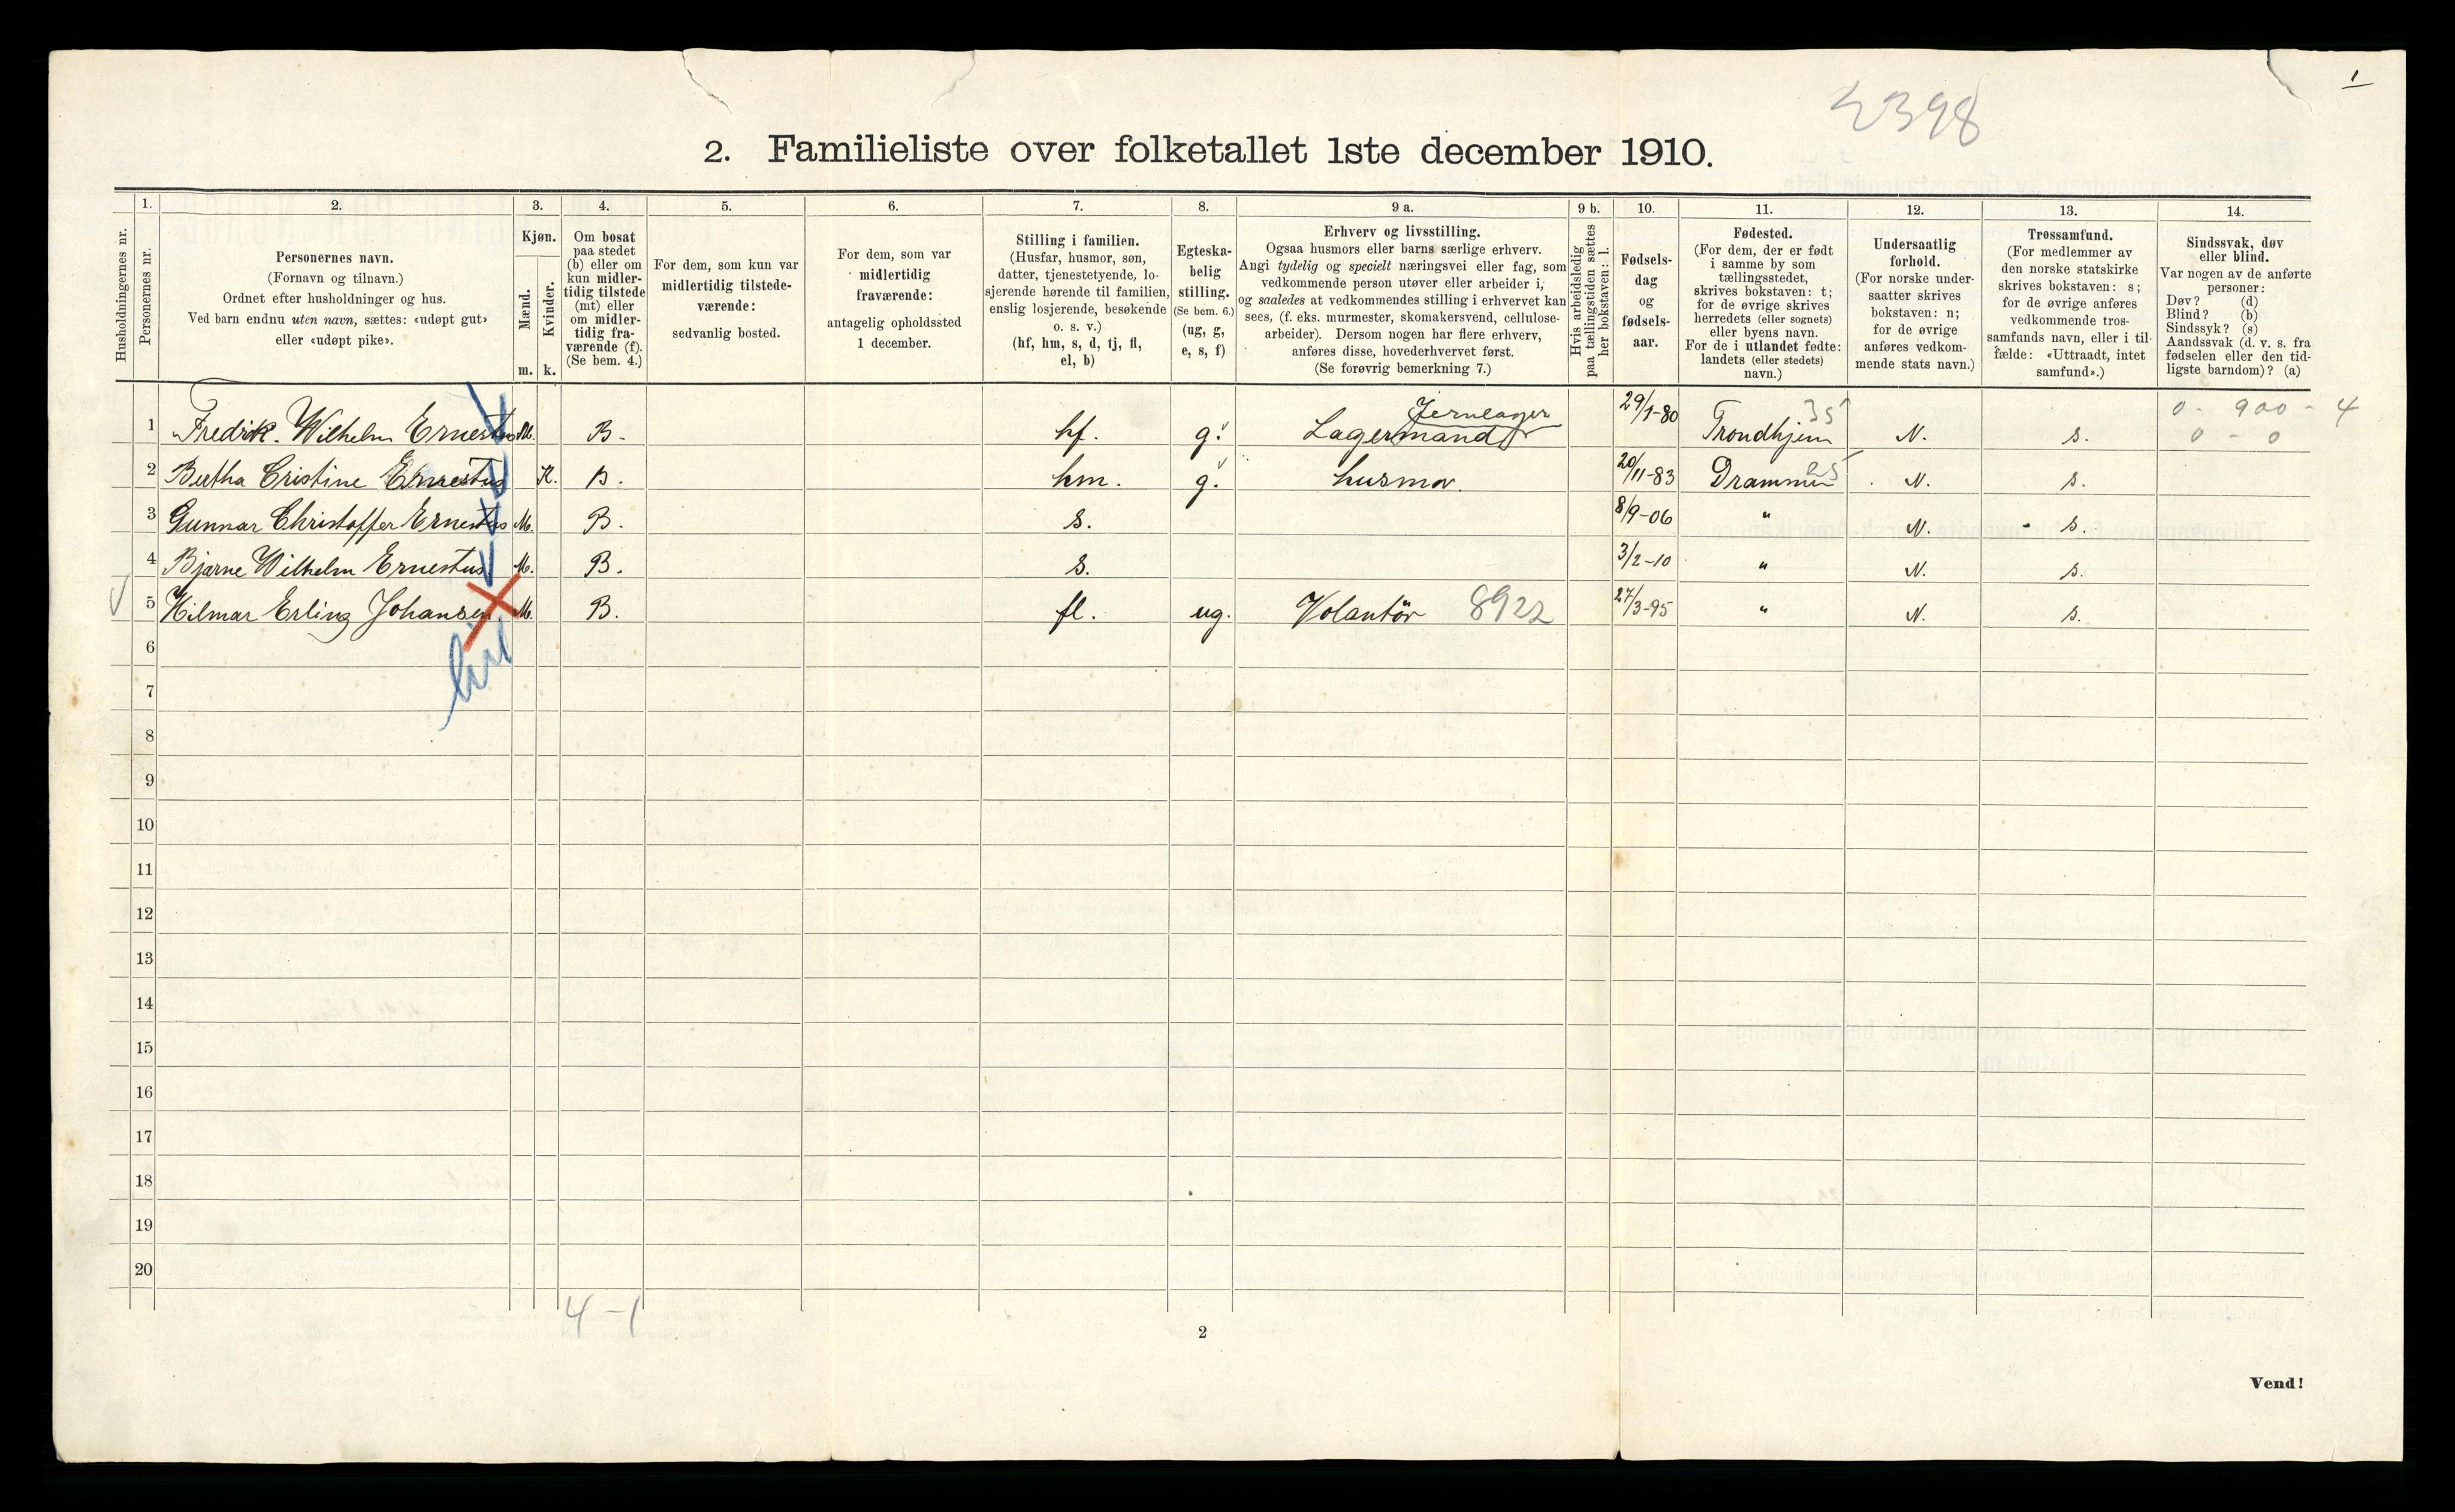 1
2398
2. Familieliste over folketallet 1ste december 1910.
1. 2. 3. 4. 5. 6. 7. 8. 9 a. 9 b. 10. 11. 12. 13. 14.
Husholdningernes nr.
Personernes nr.
Personernes navn.
(Fornavn og tilnavn.)
Ordnet efter husholdninger og hus.
Ved barn endnu uten navn, sættes: «udøpt gut»
eller «udøpt pike».
Kjøn.
Mænd.
Kvinder.
m. k.
Om bosat
paa stedet
(b) eller om
kun midler-
tidig tilstede
(mt) eller
om midler-
tidig fra-
værende (f).
(Se bem. 4.)
For dem, som kun var
midlertidig tilstede-
værende:
sedvanlig bosted.
For dem, som var
midlertidig
fraværende:
antagelig opholdssted
1 december.
Stilling i familien.
(Husfar, husmor, søn,
datter, tjenestetyende, lo-
sjerende hørende til familien,
enslig losjerende, besøkende
o. s. v.)
(hf, hm, s, d, tj, fl,
el, b)
Egteska-
belig
stilling.
(Se bem. 6.)
(ug, g,
e, s, f)
Erhverv og livsstilling.
Ogsaa husmors eller barns særlige erhverv.
Angi tydelig og specielt næringsvei eller fag, som
vedkommende person utøver eller arbeider i,
og saaledes at vedkommendes stilling i erhvervet kan
sees, (f. eks. murmester, skomakersvend, cellulose-
arbeider). Dersom nogen har flere erhverv,
anføres disse, hovederhvervet først.
(Se forøvrig bemerkning 7.)
Hvis arbeidsledig
paa tællingstiden sættes
her bokstaven: l.
Fødsels-
dag
og
fødsels-
aar.
Fødested.
(For dem, der er født
i samme by som
tællingsstedet,
skrives bokstaven: t;
for de øvrige skrives
herredets (eller sognets)
eller byens navn.
For de i utlandet fødte:
landets (eller stedets)
navn.)
Undersaatlig
forhold.
(For norske under-
saatter skrives
bokstaven: n;
for de øvrige
anføres vedkom-
mende stats navn.)
Trossamfund.
(For medlemmer av
den norske statskirke
skrives bokstaven: s;
for de øvrige anføres
vedkommende tros-
samfunds navn, eller i til-
fælde: «Uttraadt, intet
samfund».)
Sindssvak, døv
eller blind.
Var nogen av de anførte
personer:
Døv? (d)
Blind? (b)
Sindssyk? (s)
Aandssvak (d. v. s. fra
fødselen eller den tid-
ligste barndom)? (a)
Jernlager 35 0 - 900 - 4
1 Fredrik. Wilhelm Ernestus M. B. hf. g. Lagermand 29/1-80 Trondhjem N. s. 0 - 0
2 Bertha Cristine Ernestus K. B. hm. g. husmor. 20/11-83 Drammen 25 N. s.
3 Gunnar Christoffer Ernestus M. B. s. 8/9-06 " N. s.
4 Bjarne Wilhelm Ernestus. M. B. s. 3/2-10 " N. s.
5 Hilmar Erling Johansen. M. B. fl. ug. Volantör 8922 27/3-95 " N. s.
6
7
8
9
10
11
12
13
14
15
16
17
18
19
20
4 - 1
2
Vend!